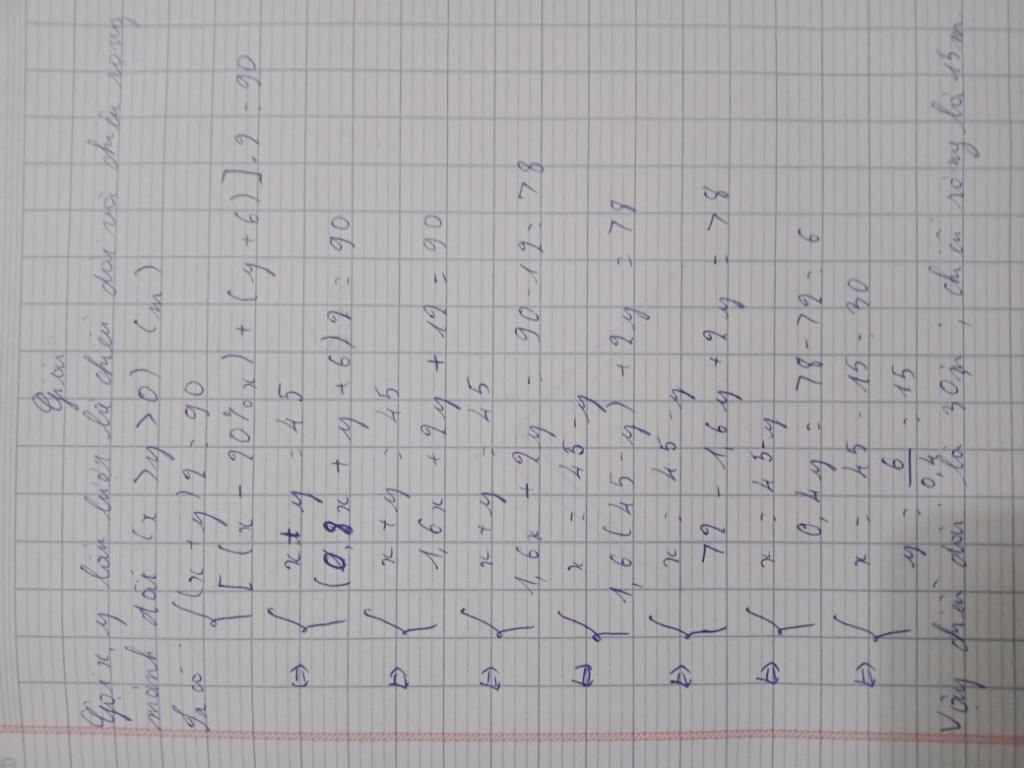 Giải
Gọi x, y lần lượt là chiều dài và chiều rộng
mảnh đất (x > y > 0) (m)
Ta có: { (x + y) 2 = 90
[(x - 20% x) + (y + 6)] . 2 = 90
⇔ { x + y = 45
(0,8x + y + 6) 2 = 90
⇔ { x + y = 45
1,6x + 2y + 12 = 90
⇔ { x + y = 45
1,6x + 2y = 90 - 12 = 78
⇔ { x = 45 - y
1,6 (45 - y) + 2y = 78
⇔ { x = 45 - y
72 - 1,6y + 2y = 78
⇔ { x = 45 - y
0,4y = 78 - 72 = 6
⇔ { x = 45 - 15 = 30
y = 6/0,4 = 15
Vậy chiều dài là 30m, chiều rộng là 15m.